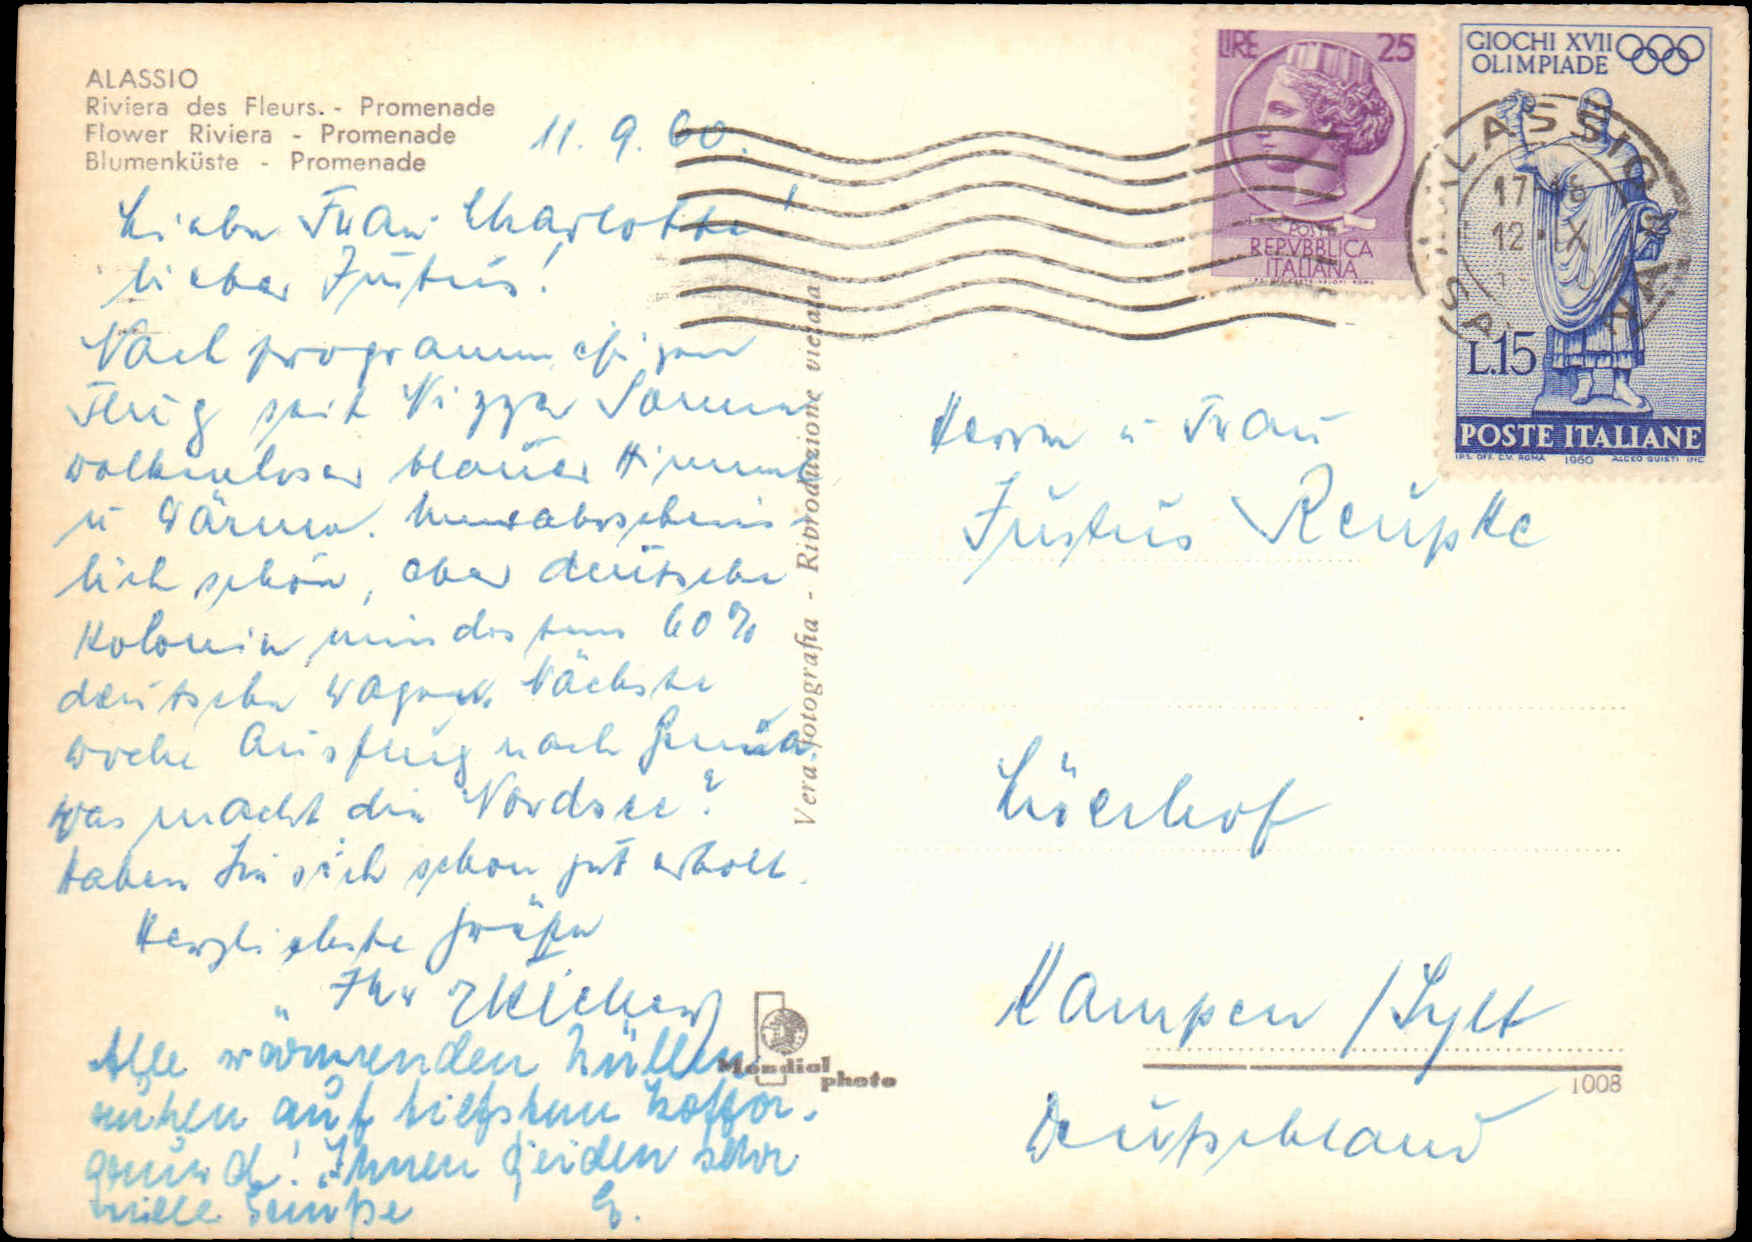 ALASSIO
Riviera des Fleurs. - Promenade
Flower Riviera - Promenade
Blumenküste - Promenade
11. 9. 60.
Liebe Frau Charlotte!
lieber Justus!
Nach programmäßigem
Flug seit Nizza Sonne
wolkenloser blauer Himmel
u Wärme. Unwahrschein-
lich schön, aber deutsche
Kolonie, mindestens 60%
deutsche Wagen. Nächste
Woche Ausflug nach Genua
Was macht die Nordsee?
Haben Sie sich schon gut erholt.
Herzlichste Grüße
Ihr
Alle wärmenden Hüllen
ruhen auf tiefstem Koffer-
grund! Ihnen beiden sehr
viele Grüße
Vera fotografia - Riproduzione vietata
Mondial
photo
LIRE 25
POSTE
REPVBBLICA
ITALIANA
GIOCHI XVII
OLIMPIADE
L.15
POSTE ITALIANE
I.P.S. OFF. C.V. ROMA 1960
ALASSIO
17-18
12·IX
Herrn u Frau
Justus Reupke
Kampen / Sylt
1008
Deutschland